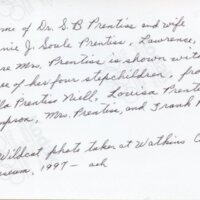 me of Dr. S. B Prentiss and wife
nie J. Soule Prentiss, Lawrence,
re Mrs. Prentiss is shown with
ee of her four stepchildren, fro
lla Prentiss Niell, Louisa Prent
mpson, Mrs. Prentiss, and Frank
Wildcat photo taker at Watkins C
useum, 1997 - ach